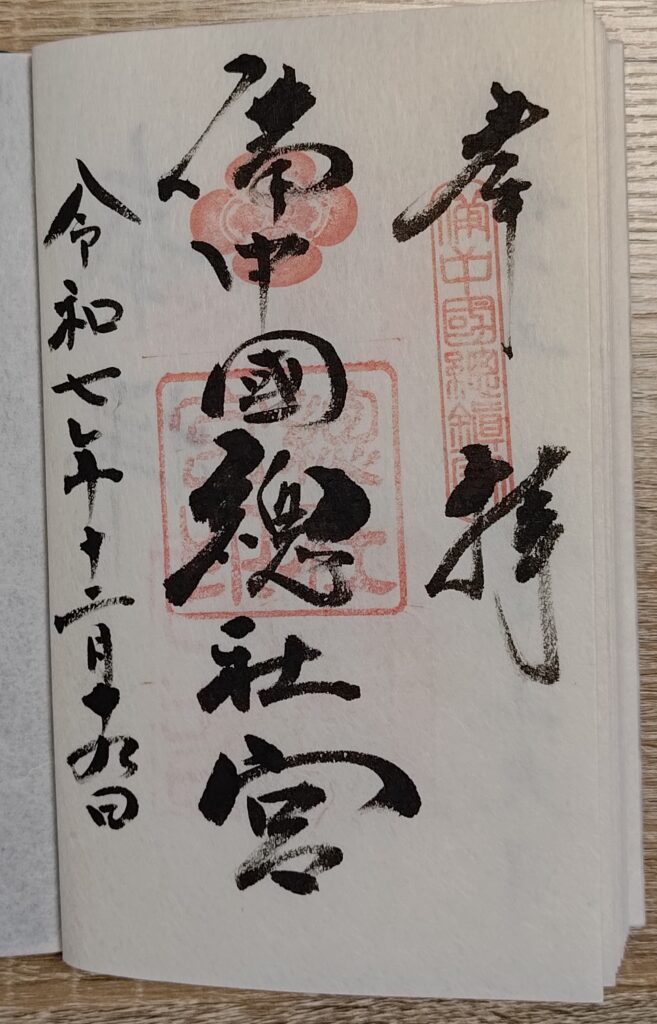 奉拝
備中國総鎮守
備中國總社宮
令和七年十二月十九日